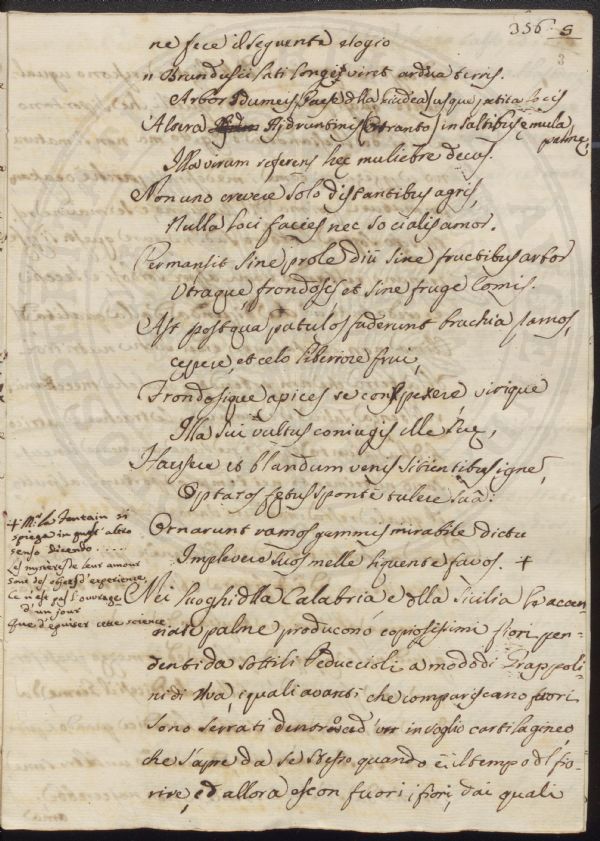 356. 5
3
ne fece il seguente elogio
" Brundusii lati longe viret ardua terris.
Arbor Idumeis (Paese dlla Giudea) usque petita locis
Altera Hydruntinis (Otranto) in saltibus emula
palme,
Illa virum referens hec muliebre decus.
Non uno crevere solo distantibus agris,
Nulla loci facies nec socialis amor.
Permansit sine prole diu sine fructibus arbor
Utraque, frondosis et sine fruge Comis.
Ast postqua patulos fuderunt brachia ramos,
cepere, et celo liberiore frui,
Frondosique apices se conspexere virique
Illa sui vultus coniugis ille sue,
Hausere et blandum venis sitientibus igne,
Optatos fetus sponte tulere sua:
Ornarunt ramos gemmis mirabile dictu
Implevere suos melle liquente favos. +
+ Mr. la Fontain si
spiega in quest'altro
senso dicendo.....
Les mysteres de leur amour
sont des objets d'experience,
Ce n'est pas l'ouvrage
d'un jour
Que d'epuiser cette science.
Nei luoghi dlla Calabria e dlla Sicilia le accen-
nate palme producono copiosissimi fiori pen-
denti da sottili Peduccioli a modo di Grappoli-
ni di Uva, i quali avanti che compariscano fuori
sono serrati dentro ad un invoglio cartilagineo,
che s'apre da se stesso quando è il tempo dl fio-
rire, ed allora escon fuori i fiori, dai quali